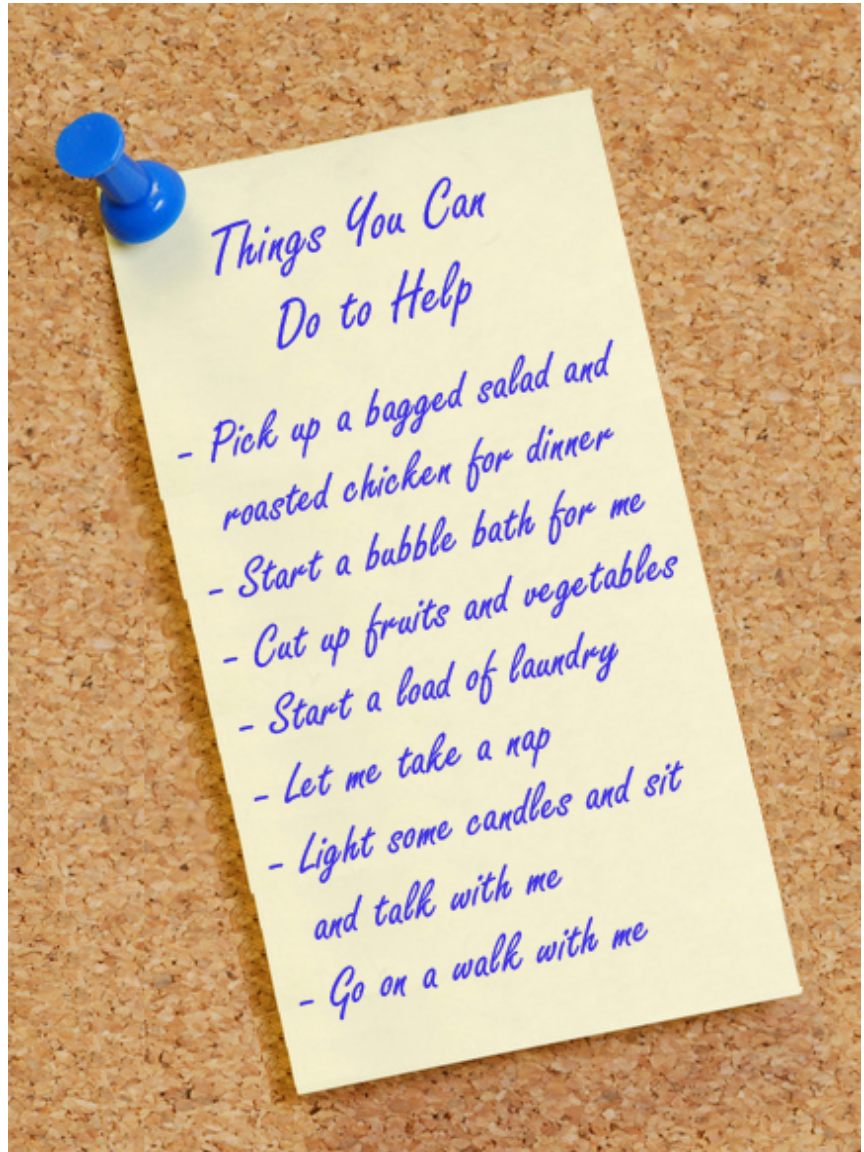 Things You Can
Do to Help
- Pick up a bagged salad and
roasted chicken for dinner
- Start a bubble bath for me
- Cut up fruits and vegetables
- Start a load of laundry
- Let me take a nap
- Light some candles and sit
and talk with me
- Go on a walk with me